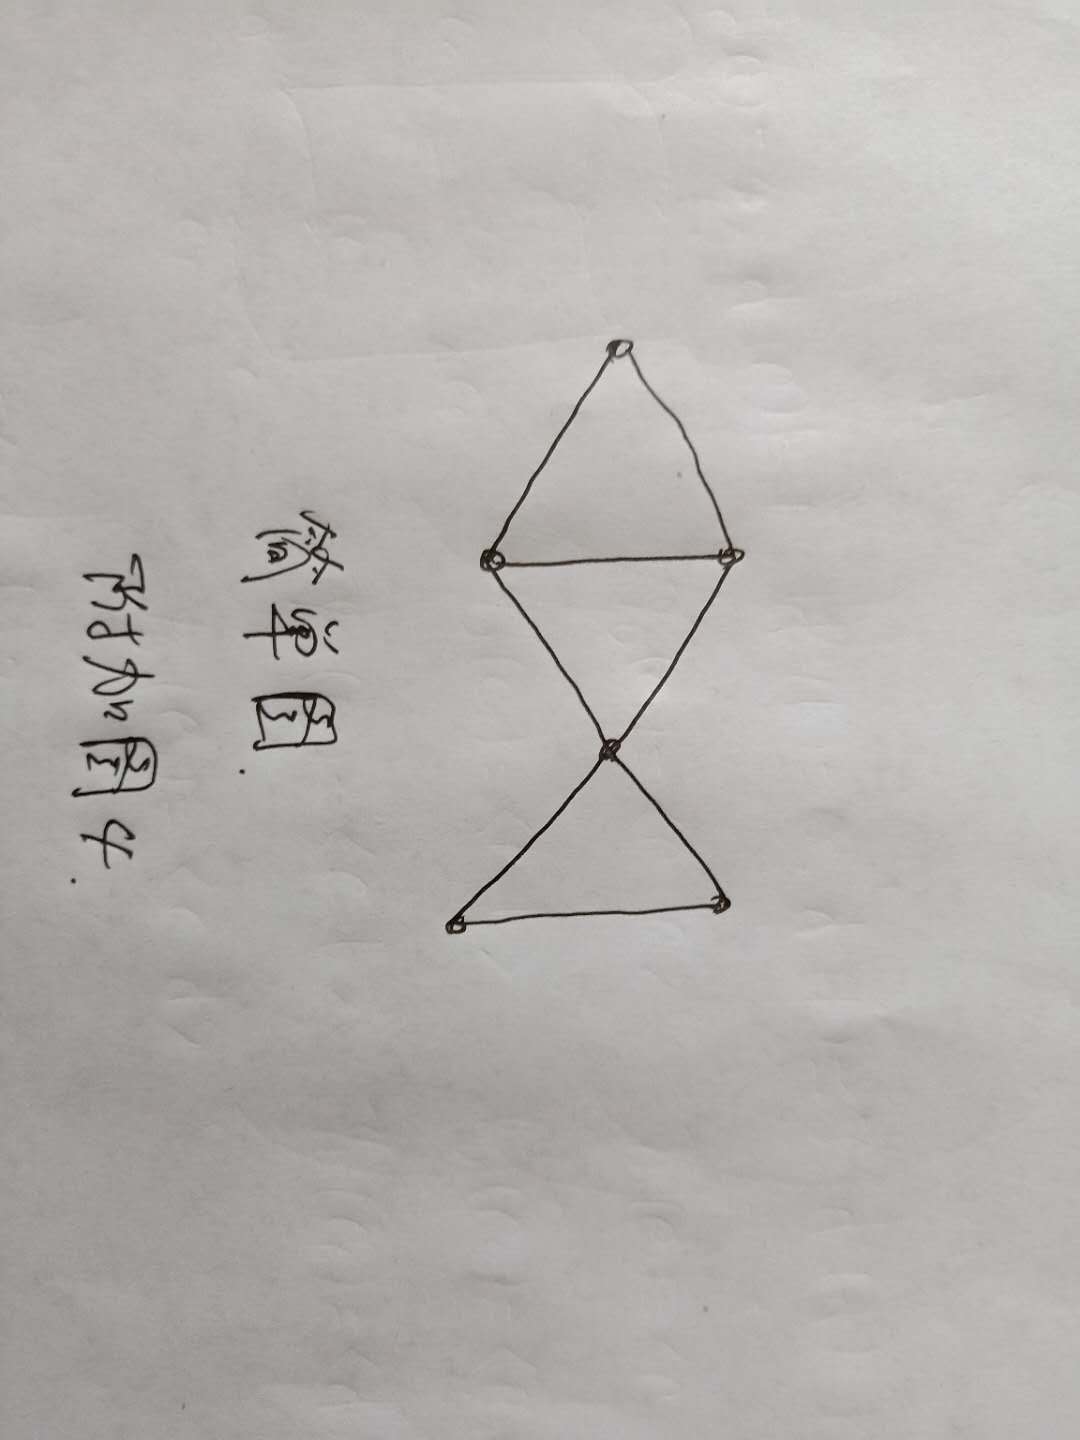 简单图.
附加图4.